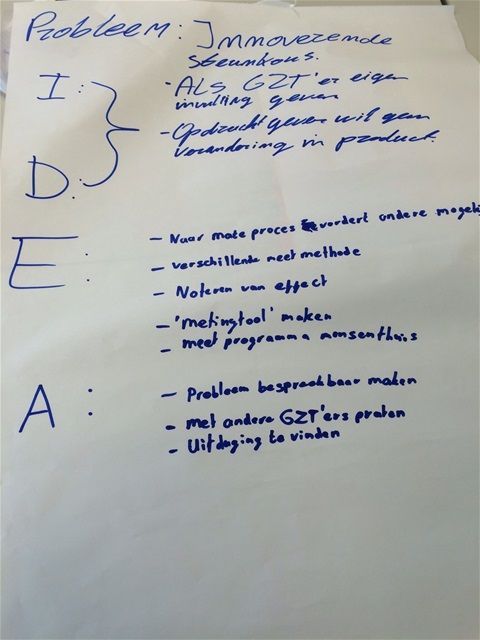 Probleem: Innoverende
steunkous.
I: - Als GZT'er eigen
invulling geven
D: - Opdrachtgever wil geen
verandering in product.
E: - Naar mate proces vordert andere mogelij
- verschillende meet methode
- Noteren van effect
- 'metingtool' maken
- meet programma
A: - Probleem bespreekbaar maken
- met andere GZT'ers praten
- Uitdaging te vinden